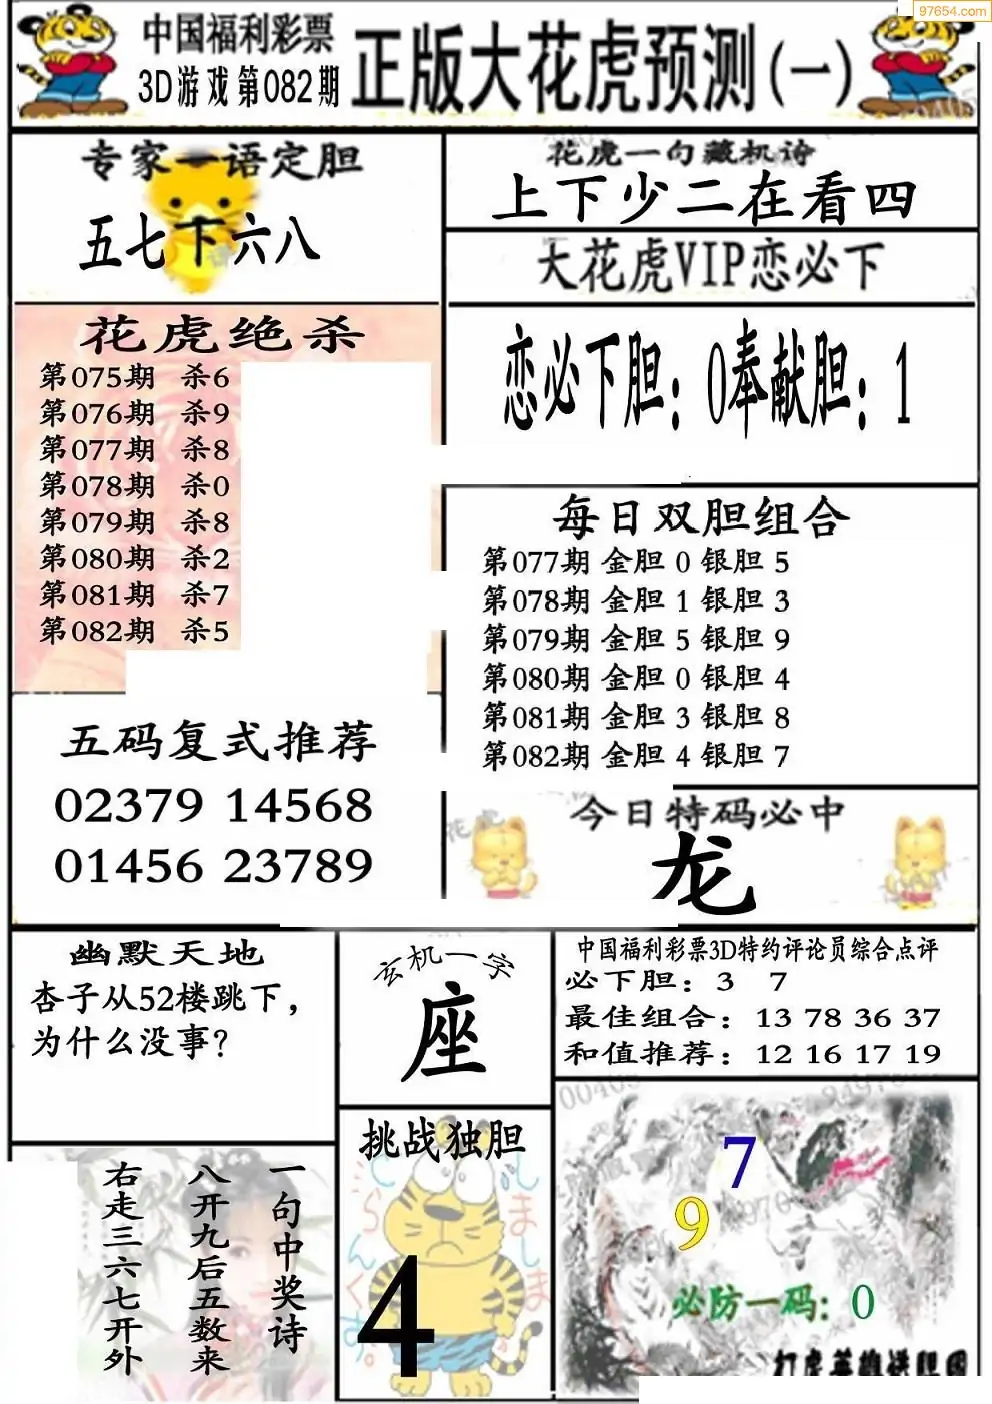 97654.com
中国福利彩票
3D游戏第082期
正版大花虎预测(一)
专家一语定胆
五七下六八
花虎一句藏机诗
上下少二在看四
大花虎VIP恋必下
恋必下胆：0奉献胆：1
花虎绝杀
第075期 杀6
第076期 杀9
第077期 杀8
第078期 杀0
第079期 杀8
第080期 杀2
第081期 杀7
第082期 杀5
每日双胆组合
第077期 金胆 0 银胆 5
第078期 金胆 1 银胆 3
第079期 金胆 5 银胆 9
第080期 金胆 0 银胆 4
第081期 金胆 3 银胆 8
第082期 金胆 4 银胆 7
五码复式推荐
02379 14568
01456 23789
今日特码必中
龙
幽默天地
杏子从52楼跳下，
为什么没事?
玄机一字
座
中国福利彩票3D特约评论员综合点评
必下胆：3 7
最佳组合：13 78 36 37
和值推荐：12 16 17 19
一句中奖诗
八开九后五数来
右走三六七开外
挑战独胆
4
7
9
必防一码：0
打虎英雄送胆图